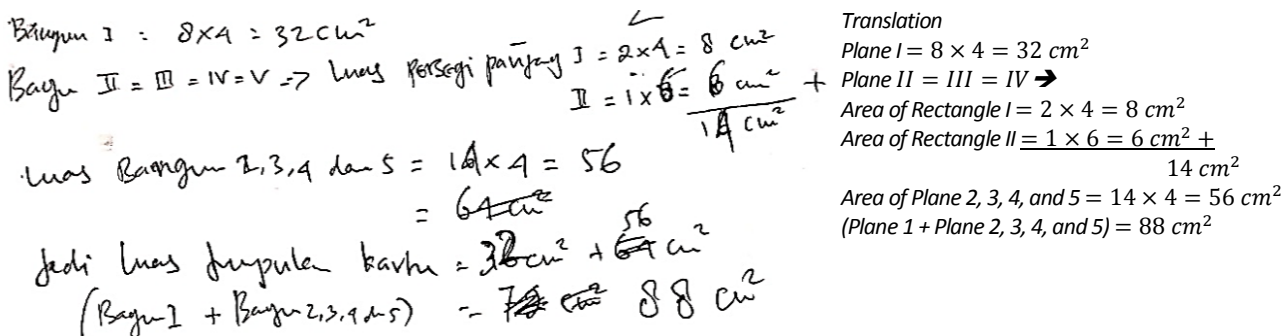 Bangun I = 8x4 = 32 cm²
Bagu II = III = IV = V => luas persegi panjang I = 2x4 = 8 cm²
II = 1x6 = 6 cm² +
14 cm²
luas Bangun 2,3,4 dan 5 = 14x4 = 56
= 64 cm²
Jadi luas kartu = 32 cm² + 56 64 cm²
(Bagu I + Bagu 2,3,4 dan 5) = 88 cm²
Translation
Plane I = 8 × 4 = 32 cm²
Plane II = III = IV ➔
Area of Rectangle I = 2 × 4 = 8 cm²
Area of Rectangle II = 1 × 6 = 6 cm² +
14 cm²
Area of Plane 2, 3, 4, and 5 = 14 × 4 = 56 cm²
(Plane 1 + Plane 2, 3, 4, and 5) = 88 cm²